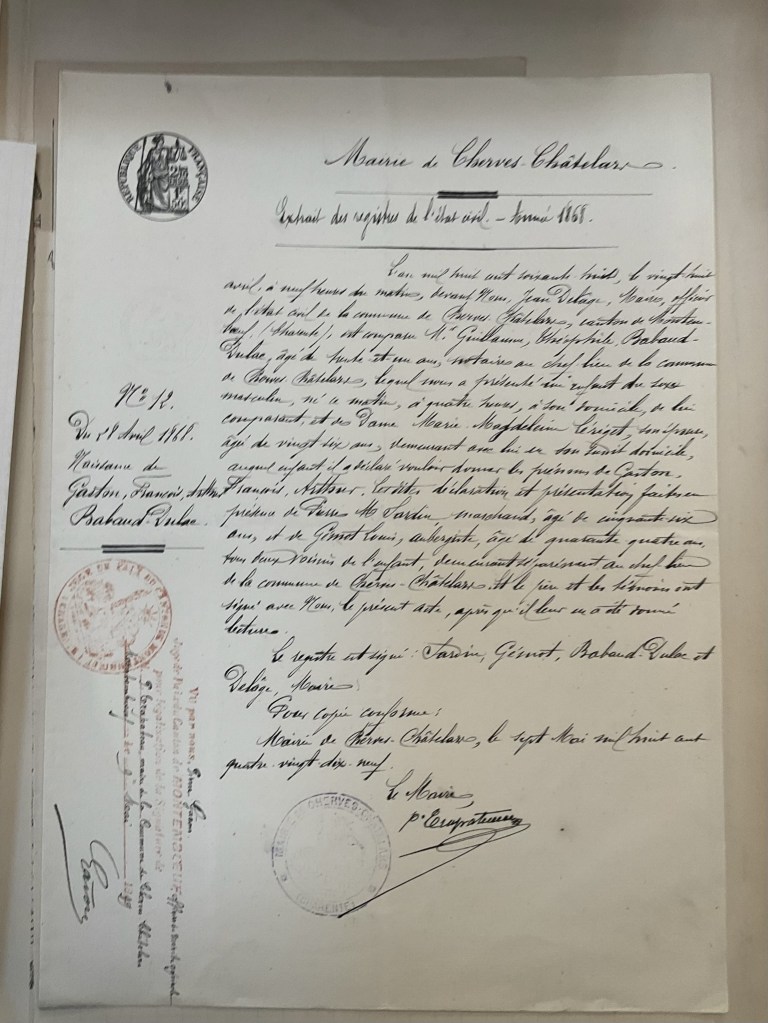 RÉPUBLIQUE FRANÇAISE
Mairie de Cherves-Châtelars.
Extrait des registres de l'état civil. - Année 1868.
L'an mil huit cent soixante huit, le vingt huit
avril, à neuf heures du matin, devant Nous, Jean Delâge, Maire, officier
de l'état civil de la commune de Cherves-Châtelars, canton de Montem-
bœuf, (Charente), est comparu Mr Guillaume, Théophile, Babaud-
Dulac, âgé de trente-et-un ans, notaire au chef lieu de la commune
de Cherves Châtelars, lequel nous a présenté un enfant du sexe
masculin, né ce matin, à quatre heures, à son domicile, de lui
comparant, et de Dame Marie-Magdeleine Lériget, son épouse,
âgé de vingt six ans, demeurant avec lui en son susdit domicile,
auquel enfant il a déclaré vouloir donner les prénoms de Gaston,
François, Arthur. Lesdites déclaration et présentation faites en
présence de Pierre Jardin marchand, âgé de cinquante six
ans, et de Gémot Louis, aubergiste, âgé de quarante quatre ans,
tous deux voisins de l'enfant, demeurant séparément au chef lieu
de la commune de Cherves-Châtelars. Et le père et les témoins ont
signé avec Nous, le présent acte, après qu'il leur en a été donné
lecture.
Le registre est signé: Jardin, Gémot, Babaud-Dulac et
Delâge, Maire
Pour copie conforme:
Mairie de Cherves-Châtelars, le sept Mai mil huit cent
quatre-vingt-dix-neuf.
Le Maire,
No 12.
Du 28 Avril 1868.
Naissance de
Gaston, François, Arthur
Babaud-Dulac.
MAIRIE DE CHERVES-CHATELARS
(CHARENTE)
Vu par nous,
Juge de Paix du Canton de MONTEMBOEUF
pour légalisation de la Signature de
maire de la Commune de Cherves Châtelars
Montembœuf le 9 Mai 1899